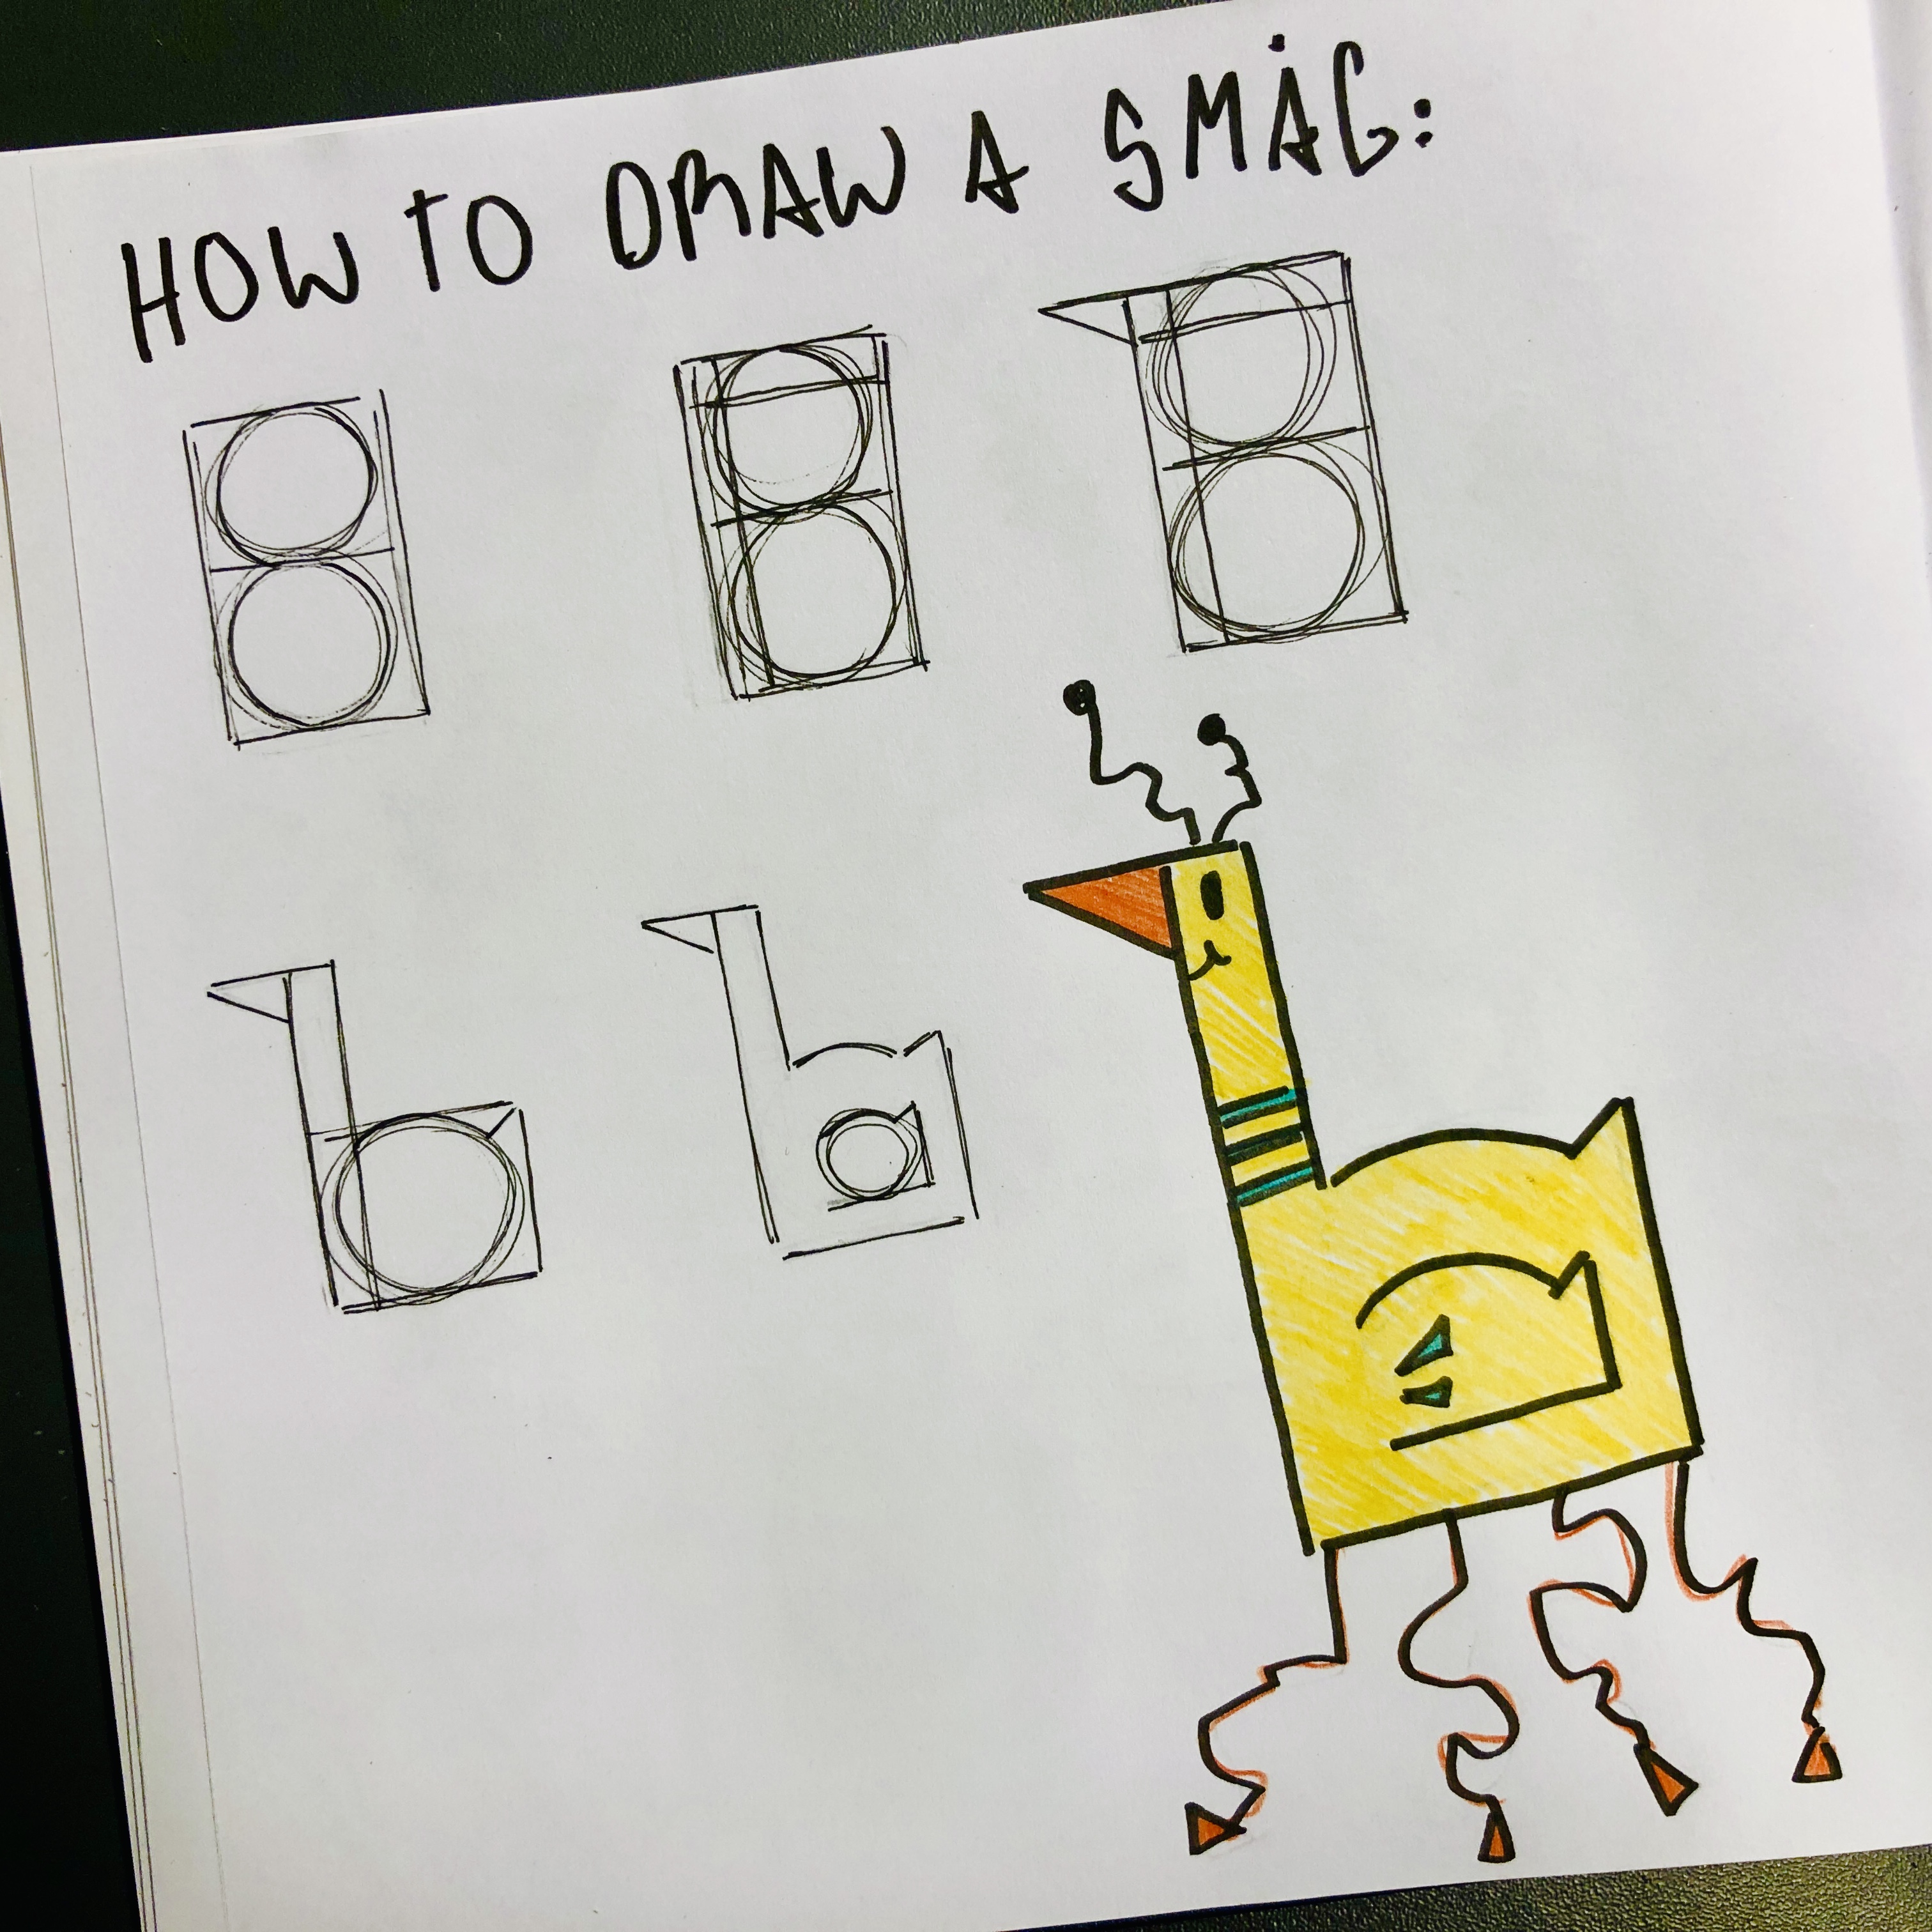 HOW TO DRAW A SMȦG: